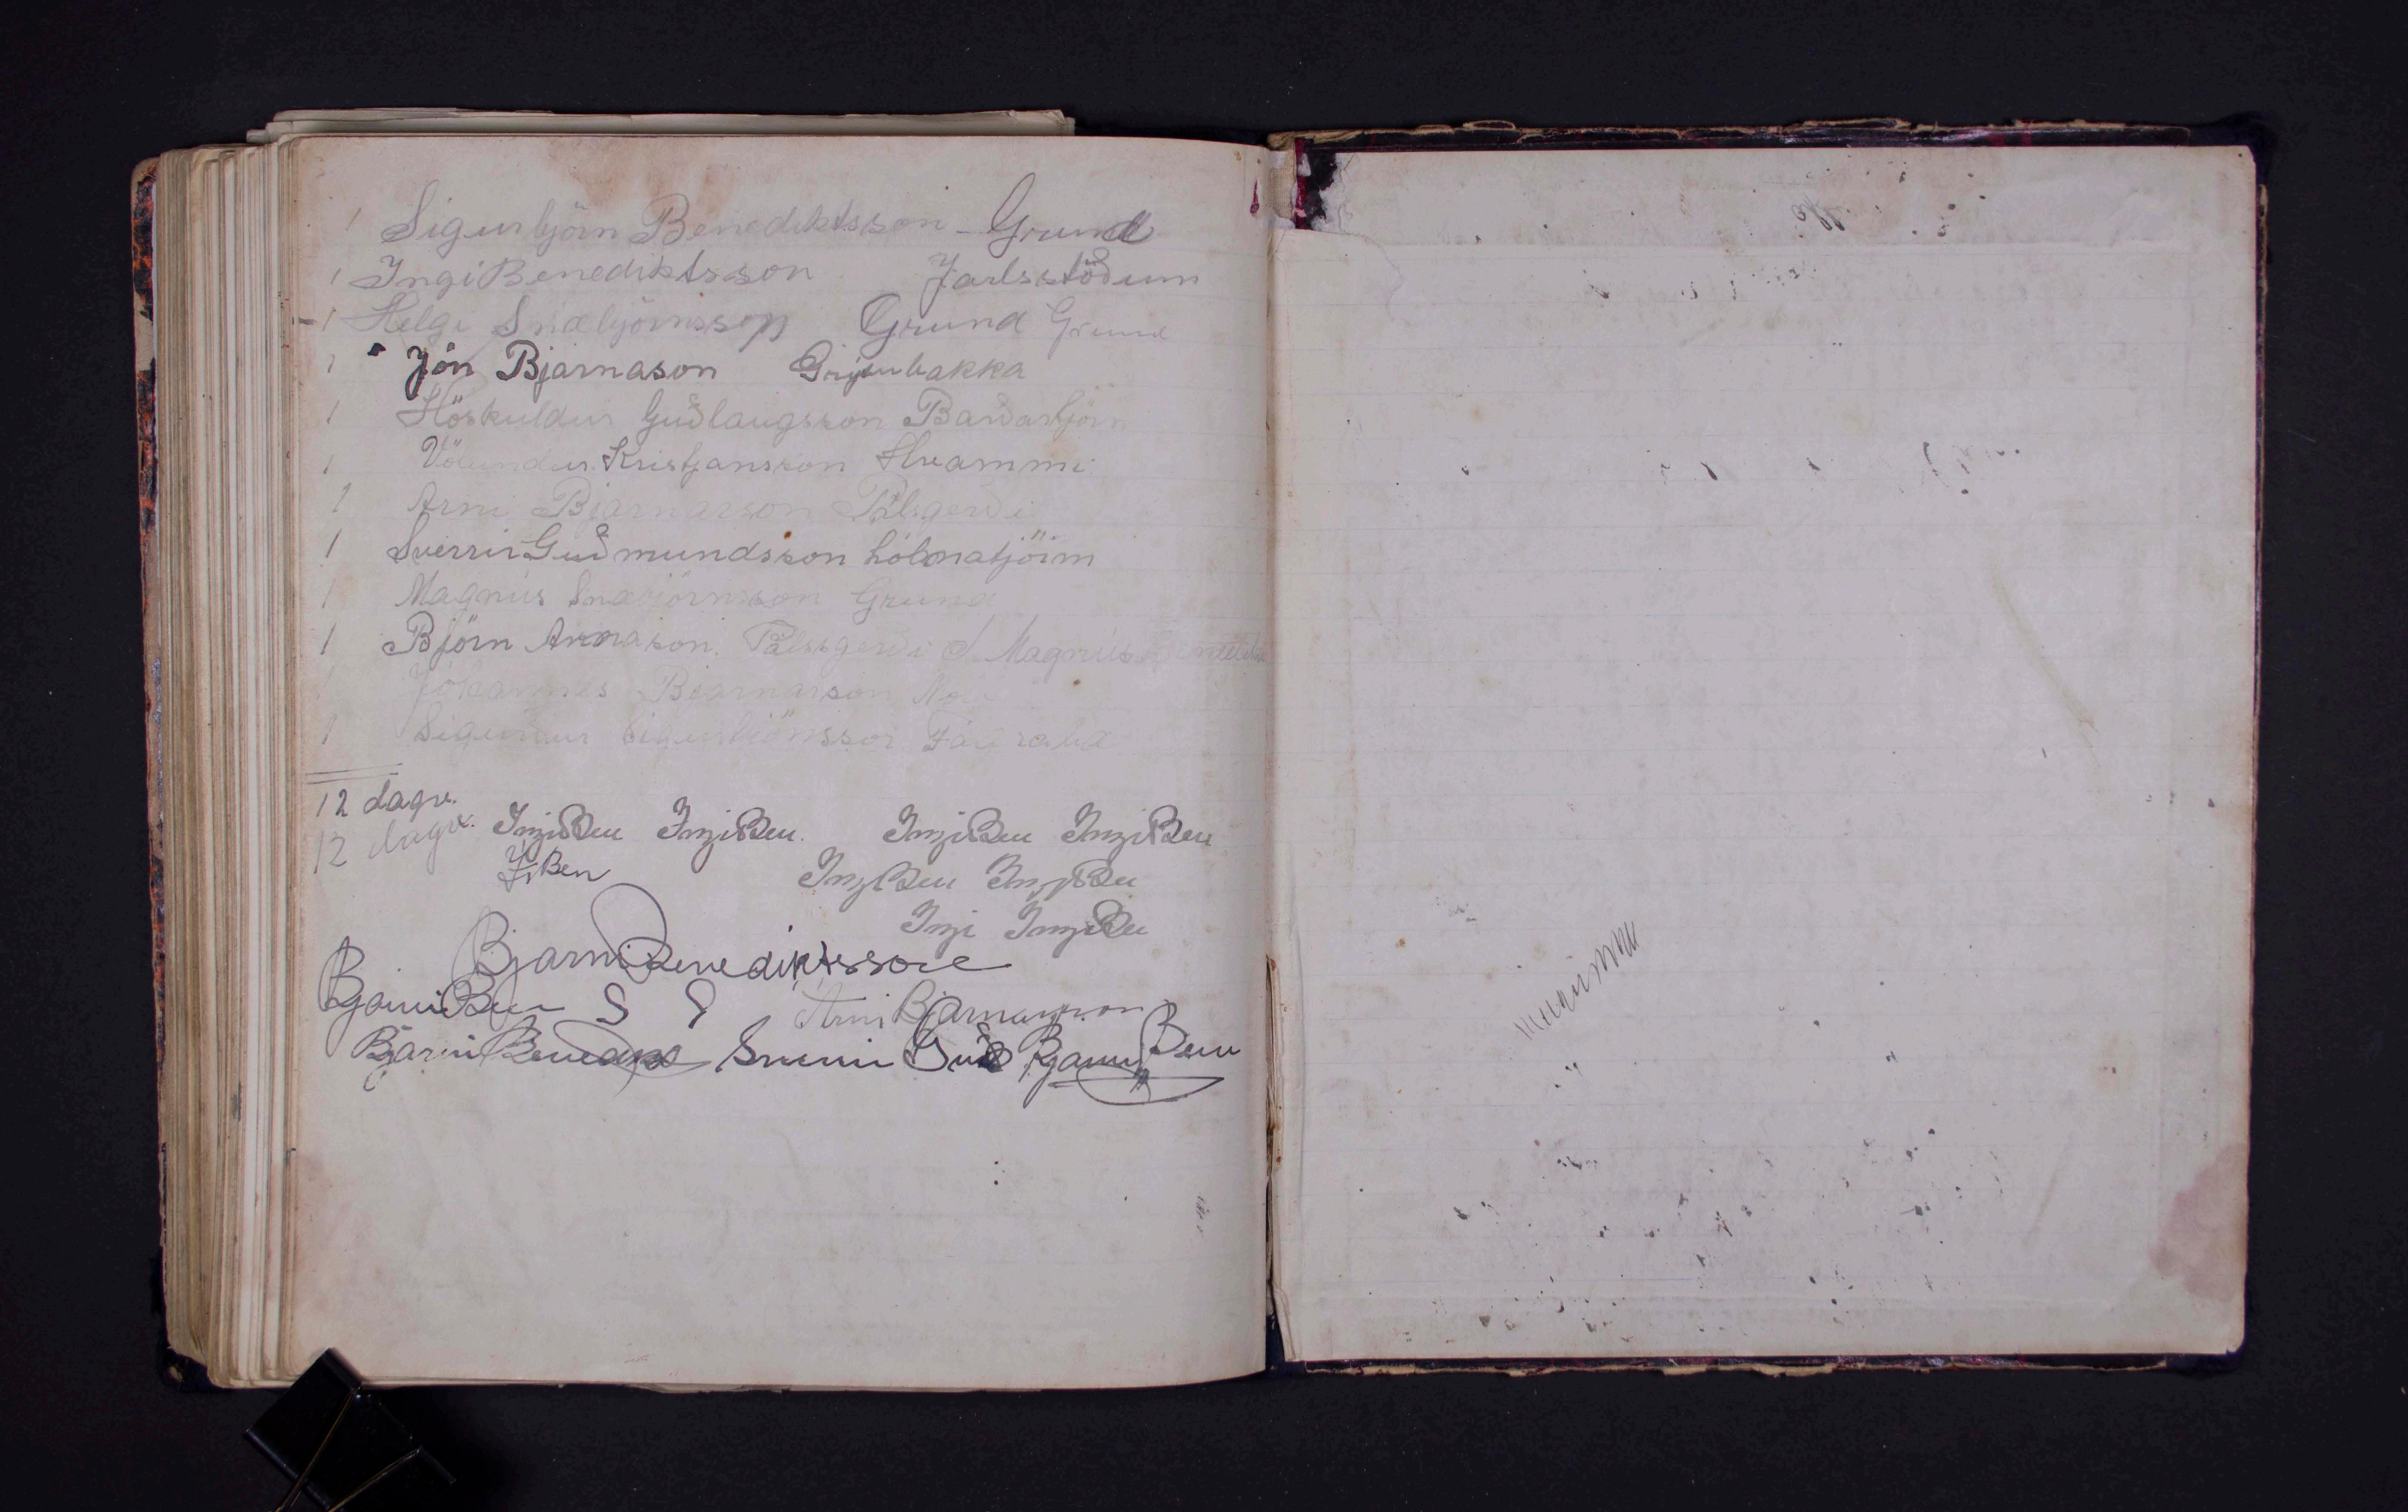 1 Sigurbjörn Benediktsson - Grund
1 Ingi Benediktsson Jarlsstöðum
1 Helgi Snæbjörnsson Grund Grund
1 Jón Bjarnason Grýtubakka
1 Höskuldur Guðlaugsson Barðartjörn
1 Völundur Kristjansson Hvammi
1 Arni Bjarnarson Pálsgerði
1 Sverrir Guðmundsson hólmatjörn
1 Magnús Snæbjörnsson Grund
1 Björn Arnason. Pálssgerði S. Magnús
1 Jóhannes Bjarnarson
1 Sigurður Sigurbjönsson Fagrabæ
12 dagv.
12 dagv. IngiBen IngiBen. IngiBen IngiBen
J. Ben IngiBen IngiBen
Ingi IngiBen
Bjarni Benediktsson
Bjarni Ben S S Arni Bjarnarson
Bjarni Bened Sverrir Guð Bjarni Ben